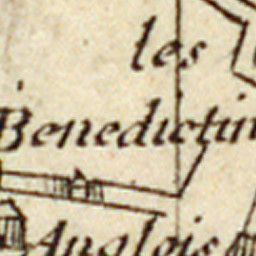 les
Benedictin
Anglois